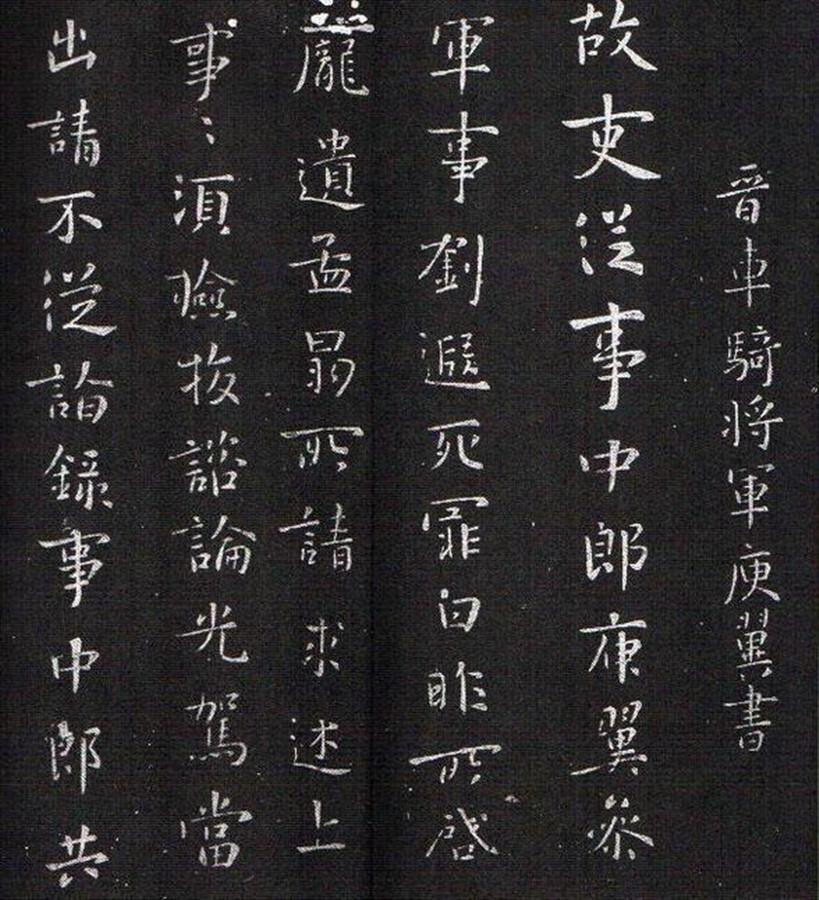 晋車騎将軍庾翼書
故吏従事中郎庾翼参
軍事劉遐死罪白昨所啓
龐遺孟昺所請求述上
事〻須瞼牧諮論光駕當
出請不従詣録事中郎共